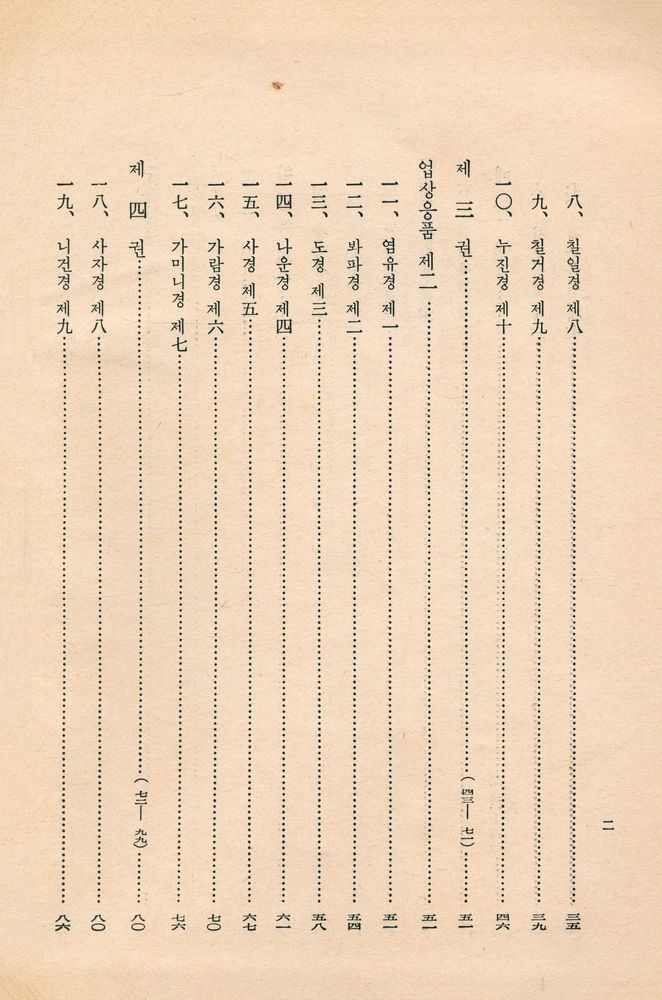 八、 칠일경 제八……三五
九、 칠거경 제九……三九
一〇、 누진경 제十……四六
제 三 권……(四三—七一)……五一
업상응품 제二……五一
一一、 염유경 제一……五一
一二、 봐파경 제二……五四
一三、 도경 제三……五八
一四、 나운경 제四……六一
一五、 사경 제五……六七
一六、 가람경 제六……七〇
一七、 가미니경 제七……七六
제 四 권……(七二—九九)……八〇
一八、 사자경 제八……八〇
一九、 니건경 제九……八六
二